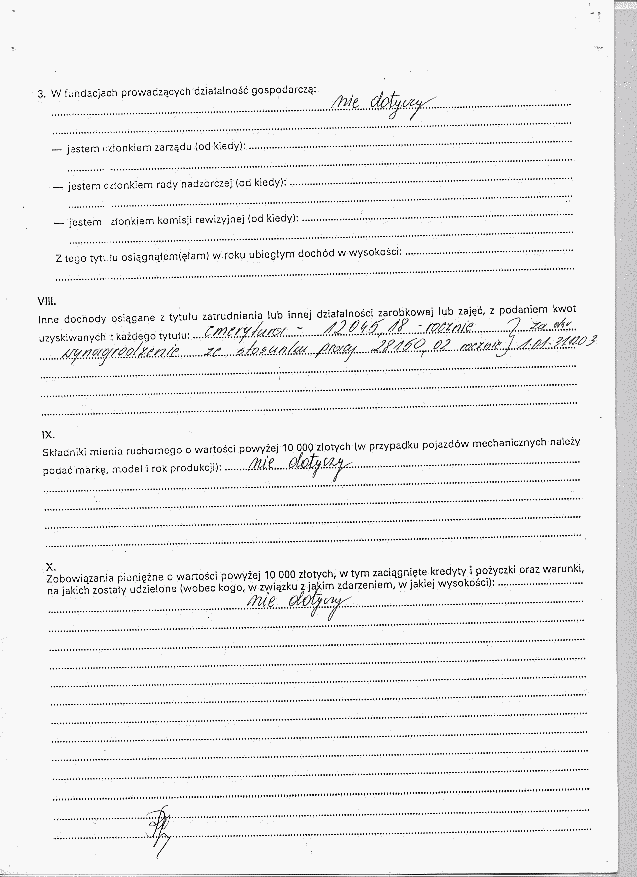 3. W fundacjach prowadzących działalność gospodarczą:
nie dotyczy
— jestem członkiem zarządu (od kiedy):
— jestem członkiem rady nadzorczej (od kiedy):
— jestem członkiem komisji rewizyjnej (od kiedy):
Z tego tytułu osiągnąłem(ęłam) w roku ubiegłym dochód w wysokości:
VIII.
Inne dochody osiągane z tytułu zatrudnienia lub innej działalności zarobkowej lub zajęć, z podaniem kwot
uzyskiwanych z każdego tytułu: emerytura - 12045,18 - rocznie } za okr.
wynagrodzenie ze stosunku pracy 28160,02 rocznie } 1.01-31.12.03
IX.
Składniki mienia ruchomego o wartości powyżej 10 000 złotych (w przypadku pojazdów mechanicznych należy
podać markę, model i rok produkcji): nie dotyczy
X.
Zobowiązania pieniężne o wartości powyżej 10 000 złotych, w tym zaciągnięte kredyty i pożyczki oraz warunki,
na jakich zostały udzielone (wobec kogo, w związku z jakim zdarzeniem, w jakiej wysokości):
nie dotyczy